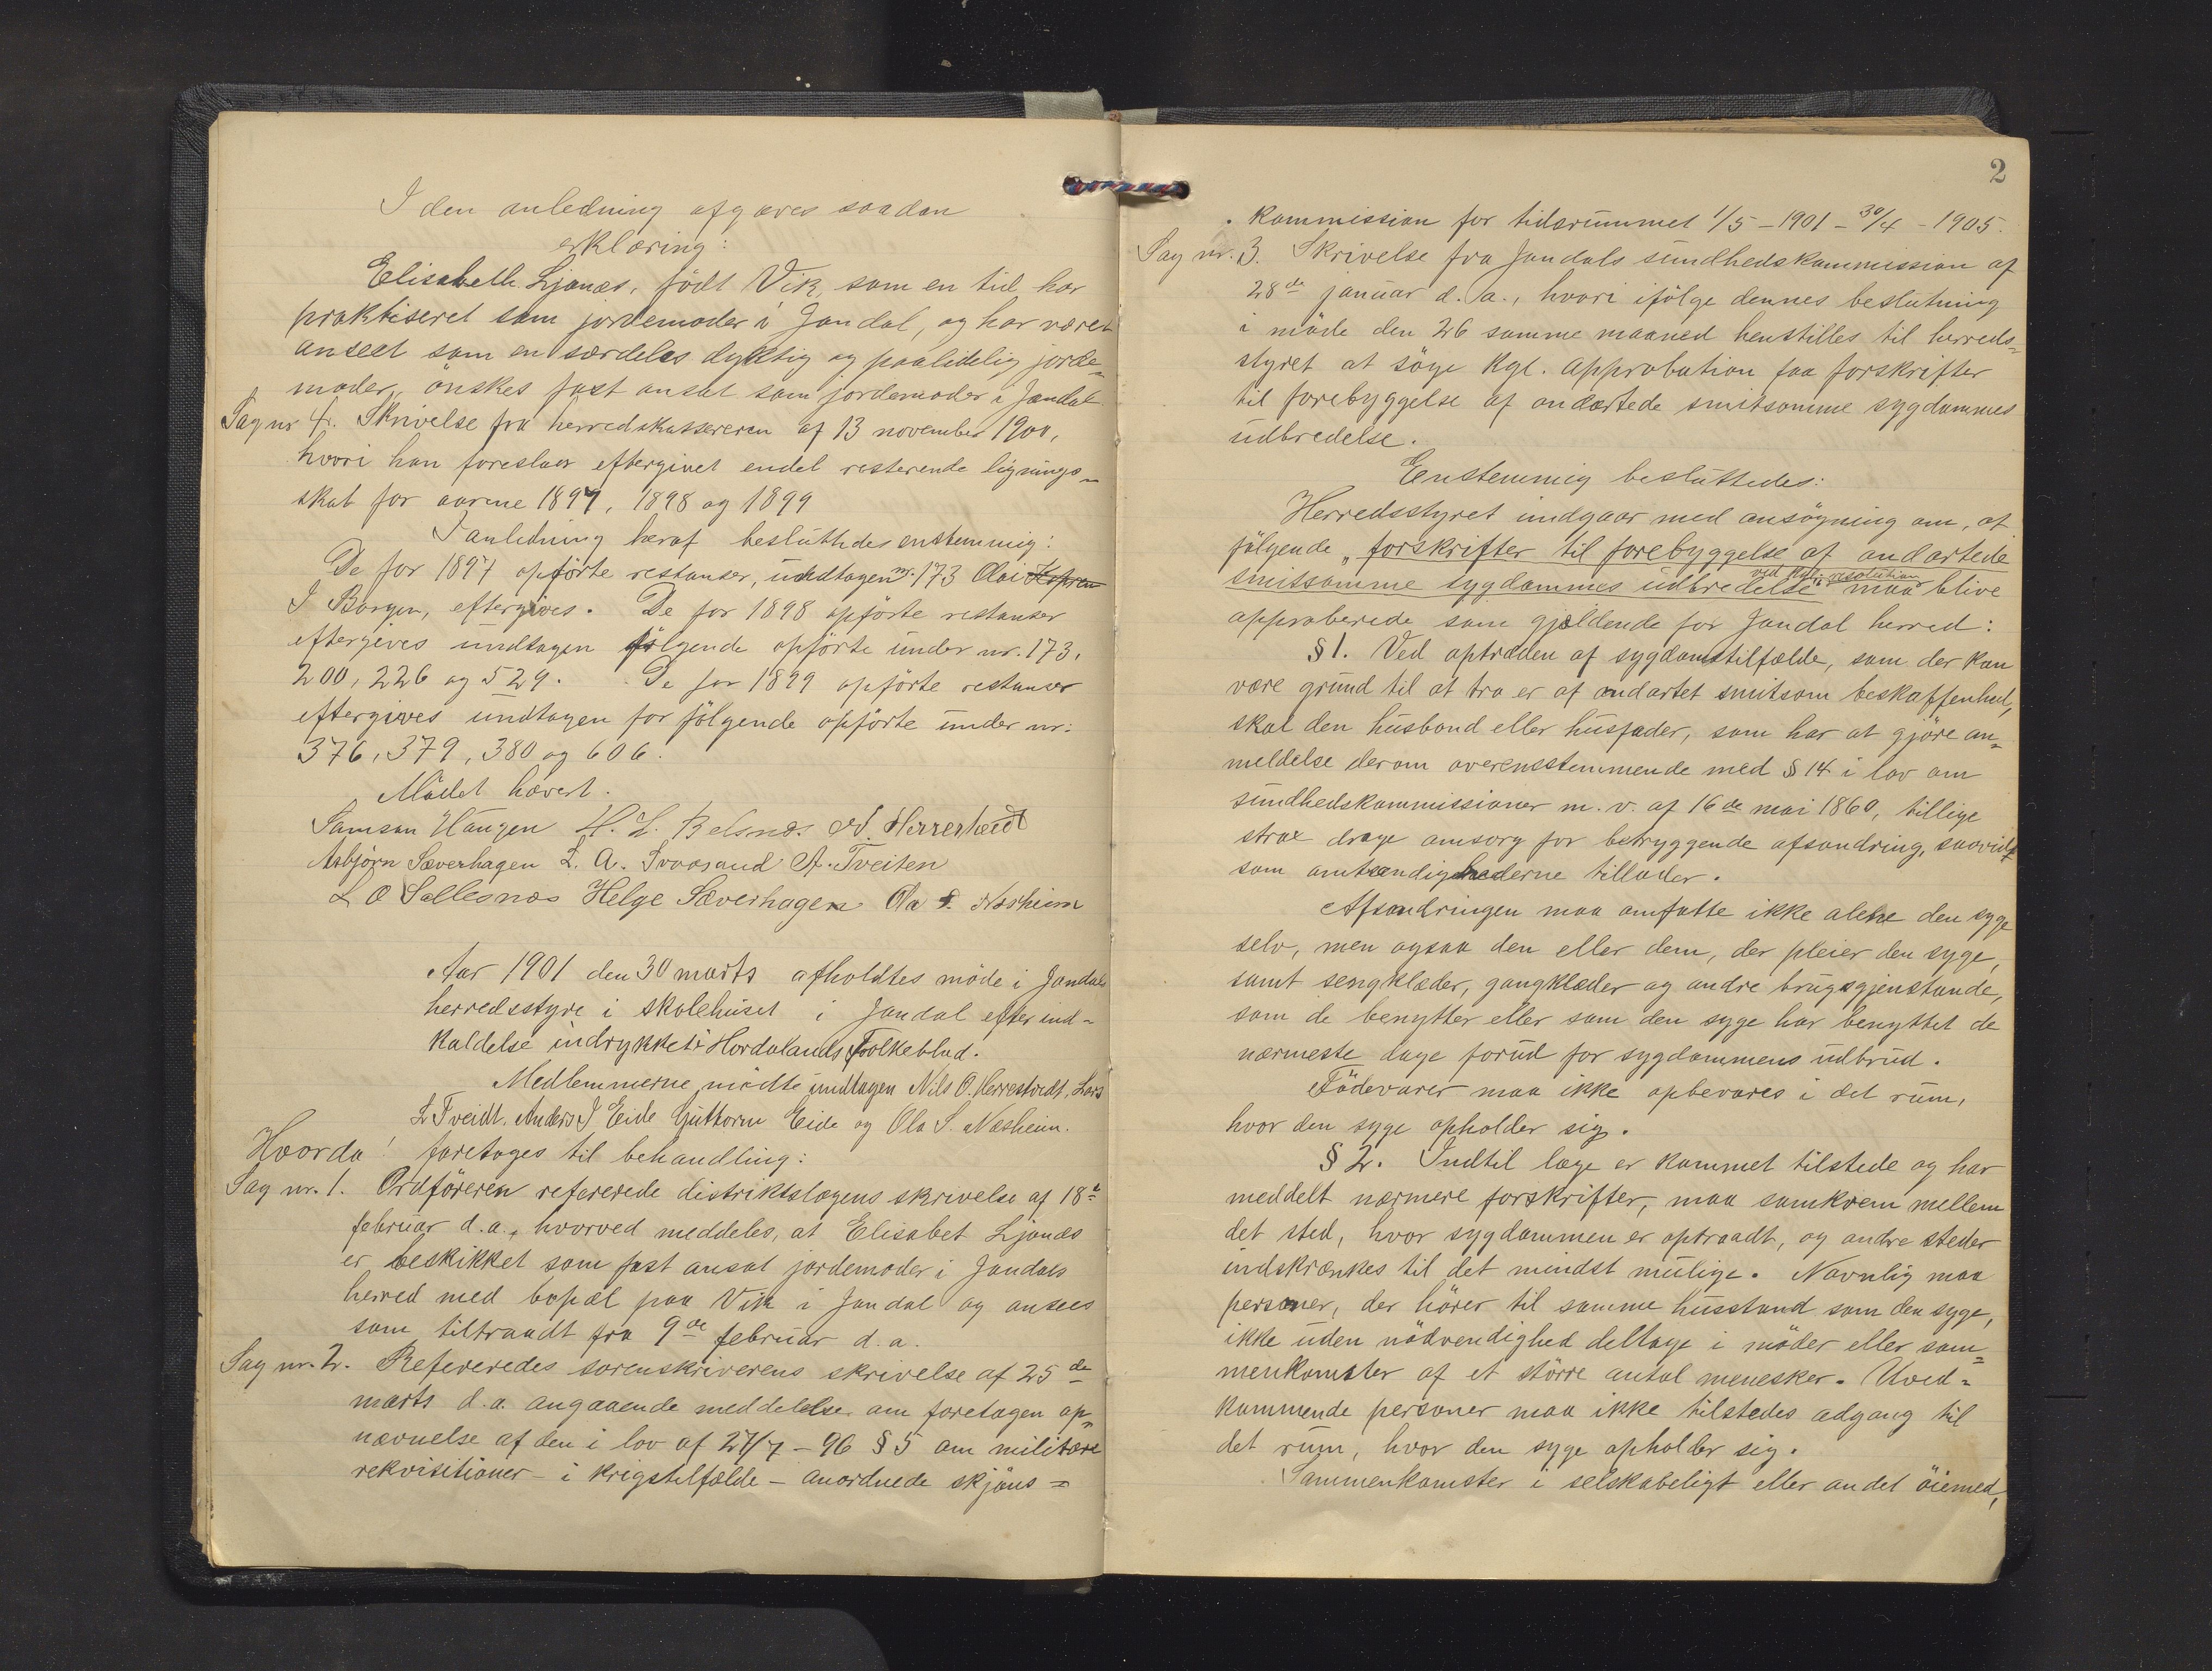 I den anledning afgaves saadan
erklæring:
Elisabeth Ljonæs, födt Vik, som en tid har
praktiseret som jordemoder i Jondal, og har været
anseet som en særdeles dyktig og paalidelig jorde-
moder, önskes fast ansat som jordemoder i Jondal.
Sag nr 4. Skrivelse fra herredskassereren af 13 november 1900,
hvori han foreslaar eftergivet endel resterende lignings-
skat for aarene 1897, 1898 og 1899
I anledning heraf besluttedes enstemmig:
De for 1897 opförte restanser, undtagen nr. 173 Olai
I Borgen, eftergives. De for 1898 opförte restanser
eftergives undtagen fölgende opförte under nr. 173,
200, 226 og 529. De for 1899 opförte restanser
eftergives undtagen for fölgende opförte under nr:
376, 379, 380 og 606.
Mödet hævet.
Samson Haugen H. L. Belsnæs N. Herrestvedt
Asbjörn Sæverhagen L. A. Svaasand A. Tveiten
L O Sollesnæs Helge Sæverhagen Ola S. Næsheim
Aar 1901 den 30 marts afholdtes möde i Jondals
herredsstyre i skolehuset i Jondal efter ind-
kaldelse indrykket i Hordalands Folkeblad.
Medlemmerne mödte undtagen Nils O. Herrestvedt, Lars
L Tveidt, Anders J Eide Guttorm Eide og Ola S. Næsheim.
Hvorda! foretages til behandling:
Sag nr. 1. Ordföreren refererede distriktslægens skrivelse af 18de
februar d.a., hvorved meddeles, at Elisabet Ljonæs
er beskikket som fast ansat jordemoder i Jondals
herred med bopæl paa Vik i Jondal og ansees
som tiltraadt fra 9de februar d.a.
Sag nr. 2. Refereredes sorenskriverens skrivelse af 25de
marts d.a. angaaende meddelelse om foretagen op-
nævnelse af den i lov af 27/7 - 96 § 5 om militære
rekvisitioner - i krigstilfælde - anordnede skjöns-
2
kommission for tidsrummet 1/5 - 1901 - 30/4 - 1905.
Sag nr. 3. Skrivelse fra Jondals sundhedskommission af
28de januar d.a., hvori ifölge dennes beslutning
i möde den 26 samme maaned henstilles til herreds-
styret at söge kgl. approbation paa forskrifter
til forebyggelse af ondartede smitsomme sygdommes
udbredelse.
Eenstemmig besluttedes:
Herredsstyret indgaar med ansögning om, at
fölgende „forskrifter til forebyggelse af ondartede
ved kgl. resolution
smitsomme sygdommes udbredelse" maa blive
approberede som gjældende for Jondal herred:
§ 1. Ved optræden af sygdomstilfælde, som der kan
være grund til at tro er af ondartet smitsom beskaffenhed,
skal den husbond eller husfader, som har at gjöre an-
meldelse derom overensstemmende med § 14 i lov om
sundhedskommissioner m. v. af 16de mai 1860, tillige
strax drage omsorg for betryggende afsondring, saavidt
som omstændighederne tillader.
Afsondringen maa omfatte ikke alene den syge
selv, men ogsaa den eller dem, der pleier den syge,
samt sengklæder, gangklæder og andre brugsgjenstande,
som de benytter eller som den syge har benyttet de
nærmeste dage forud for sygdommens udbrud.
Födevarer maa ikke opbevares i det rum,
hvor den syge opholder sig.
§ 2. Indtil læge er kommet tilstede og har
meddelt nærmere forskrifter, maa samkvem mellem
det sted, hvor sygdommen er optraadt, og andre steder
indskrænkes til det mindst mulige. Navnlig maa
personer, der hörer til samme husstand som den syge,
ikke uden nödvendighed deltage i möder eller sam-
menkomster af et större antal menesker. Uved-
kommende personer maa ikke tilstedes adgang til
det rum, hvor den syge opholder sig.
Sammenkomster i selskabeligt eller andet öiemed,